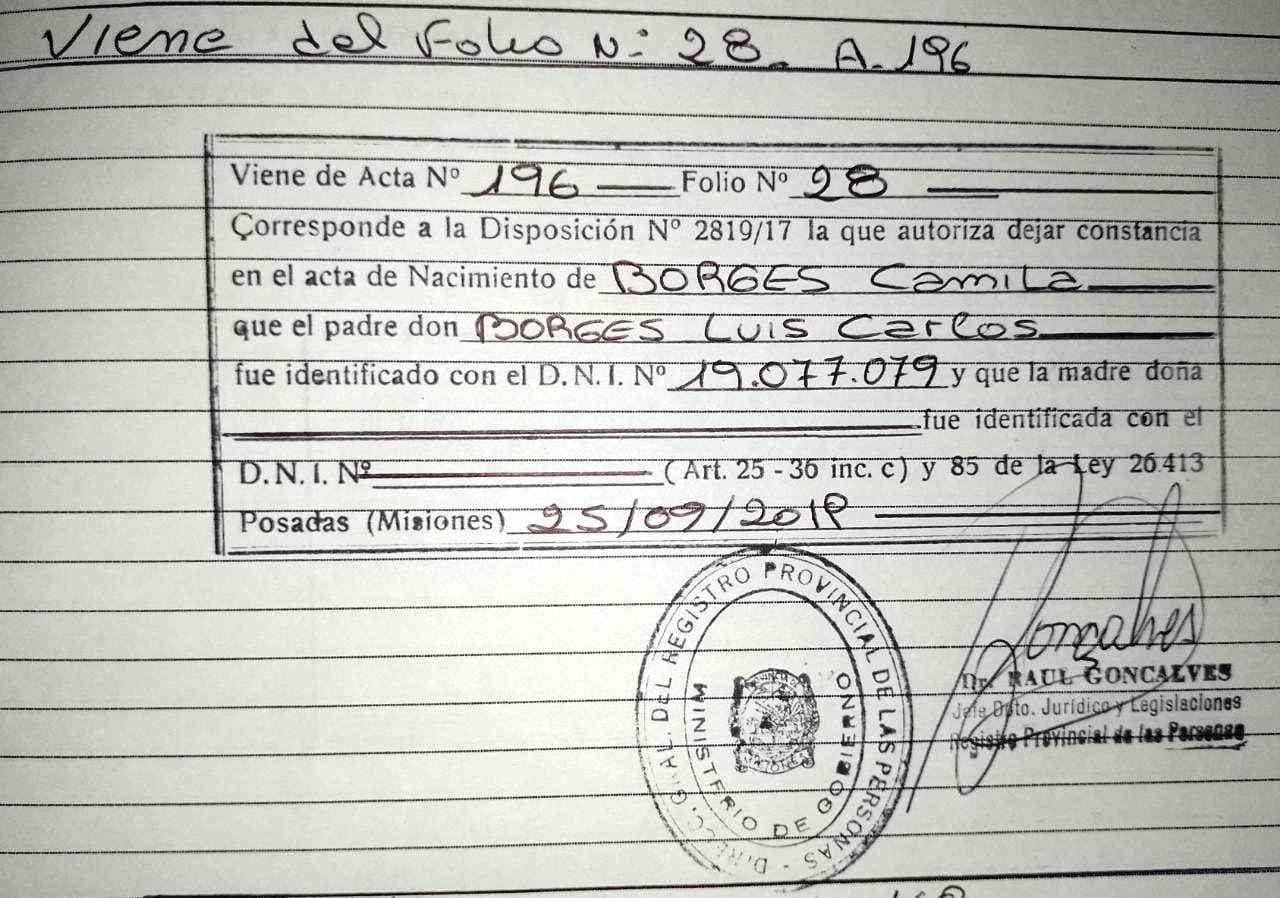 Viene del Folio N: 28. A. 196
Viene de Acta Nº 196 Folio Nº 28
Corresponde a la Disposición Nº 2819/17 la que autoriza dejar constancia
en el acta de Nacimiento de BORGES Camila
que el padre don BORGES Luis Carlos
fue identificado con el D.N.I. Nº 19.077.079 y que la madre doña
fue identificada con el
D.N.I. Nº (Art. 25 - 36 inc. c) y 85 de la Ley 26.413
Posadas (Misiones) 25/09/2018
DIRECC. GRAL. DEL REGISTRO PROVINCIAL DE LAS PERSONAS -
MINISTERIO DE GOBIERNO
Gonçalves
Dr. RAUL GONCALVES
Jefe Dpto. Jurídico y Legislaciones
Registro Provincial de las Personas